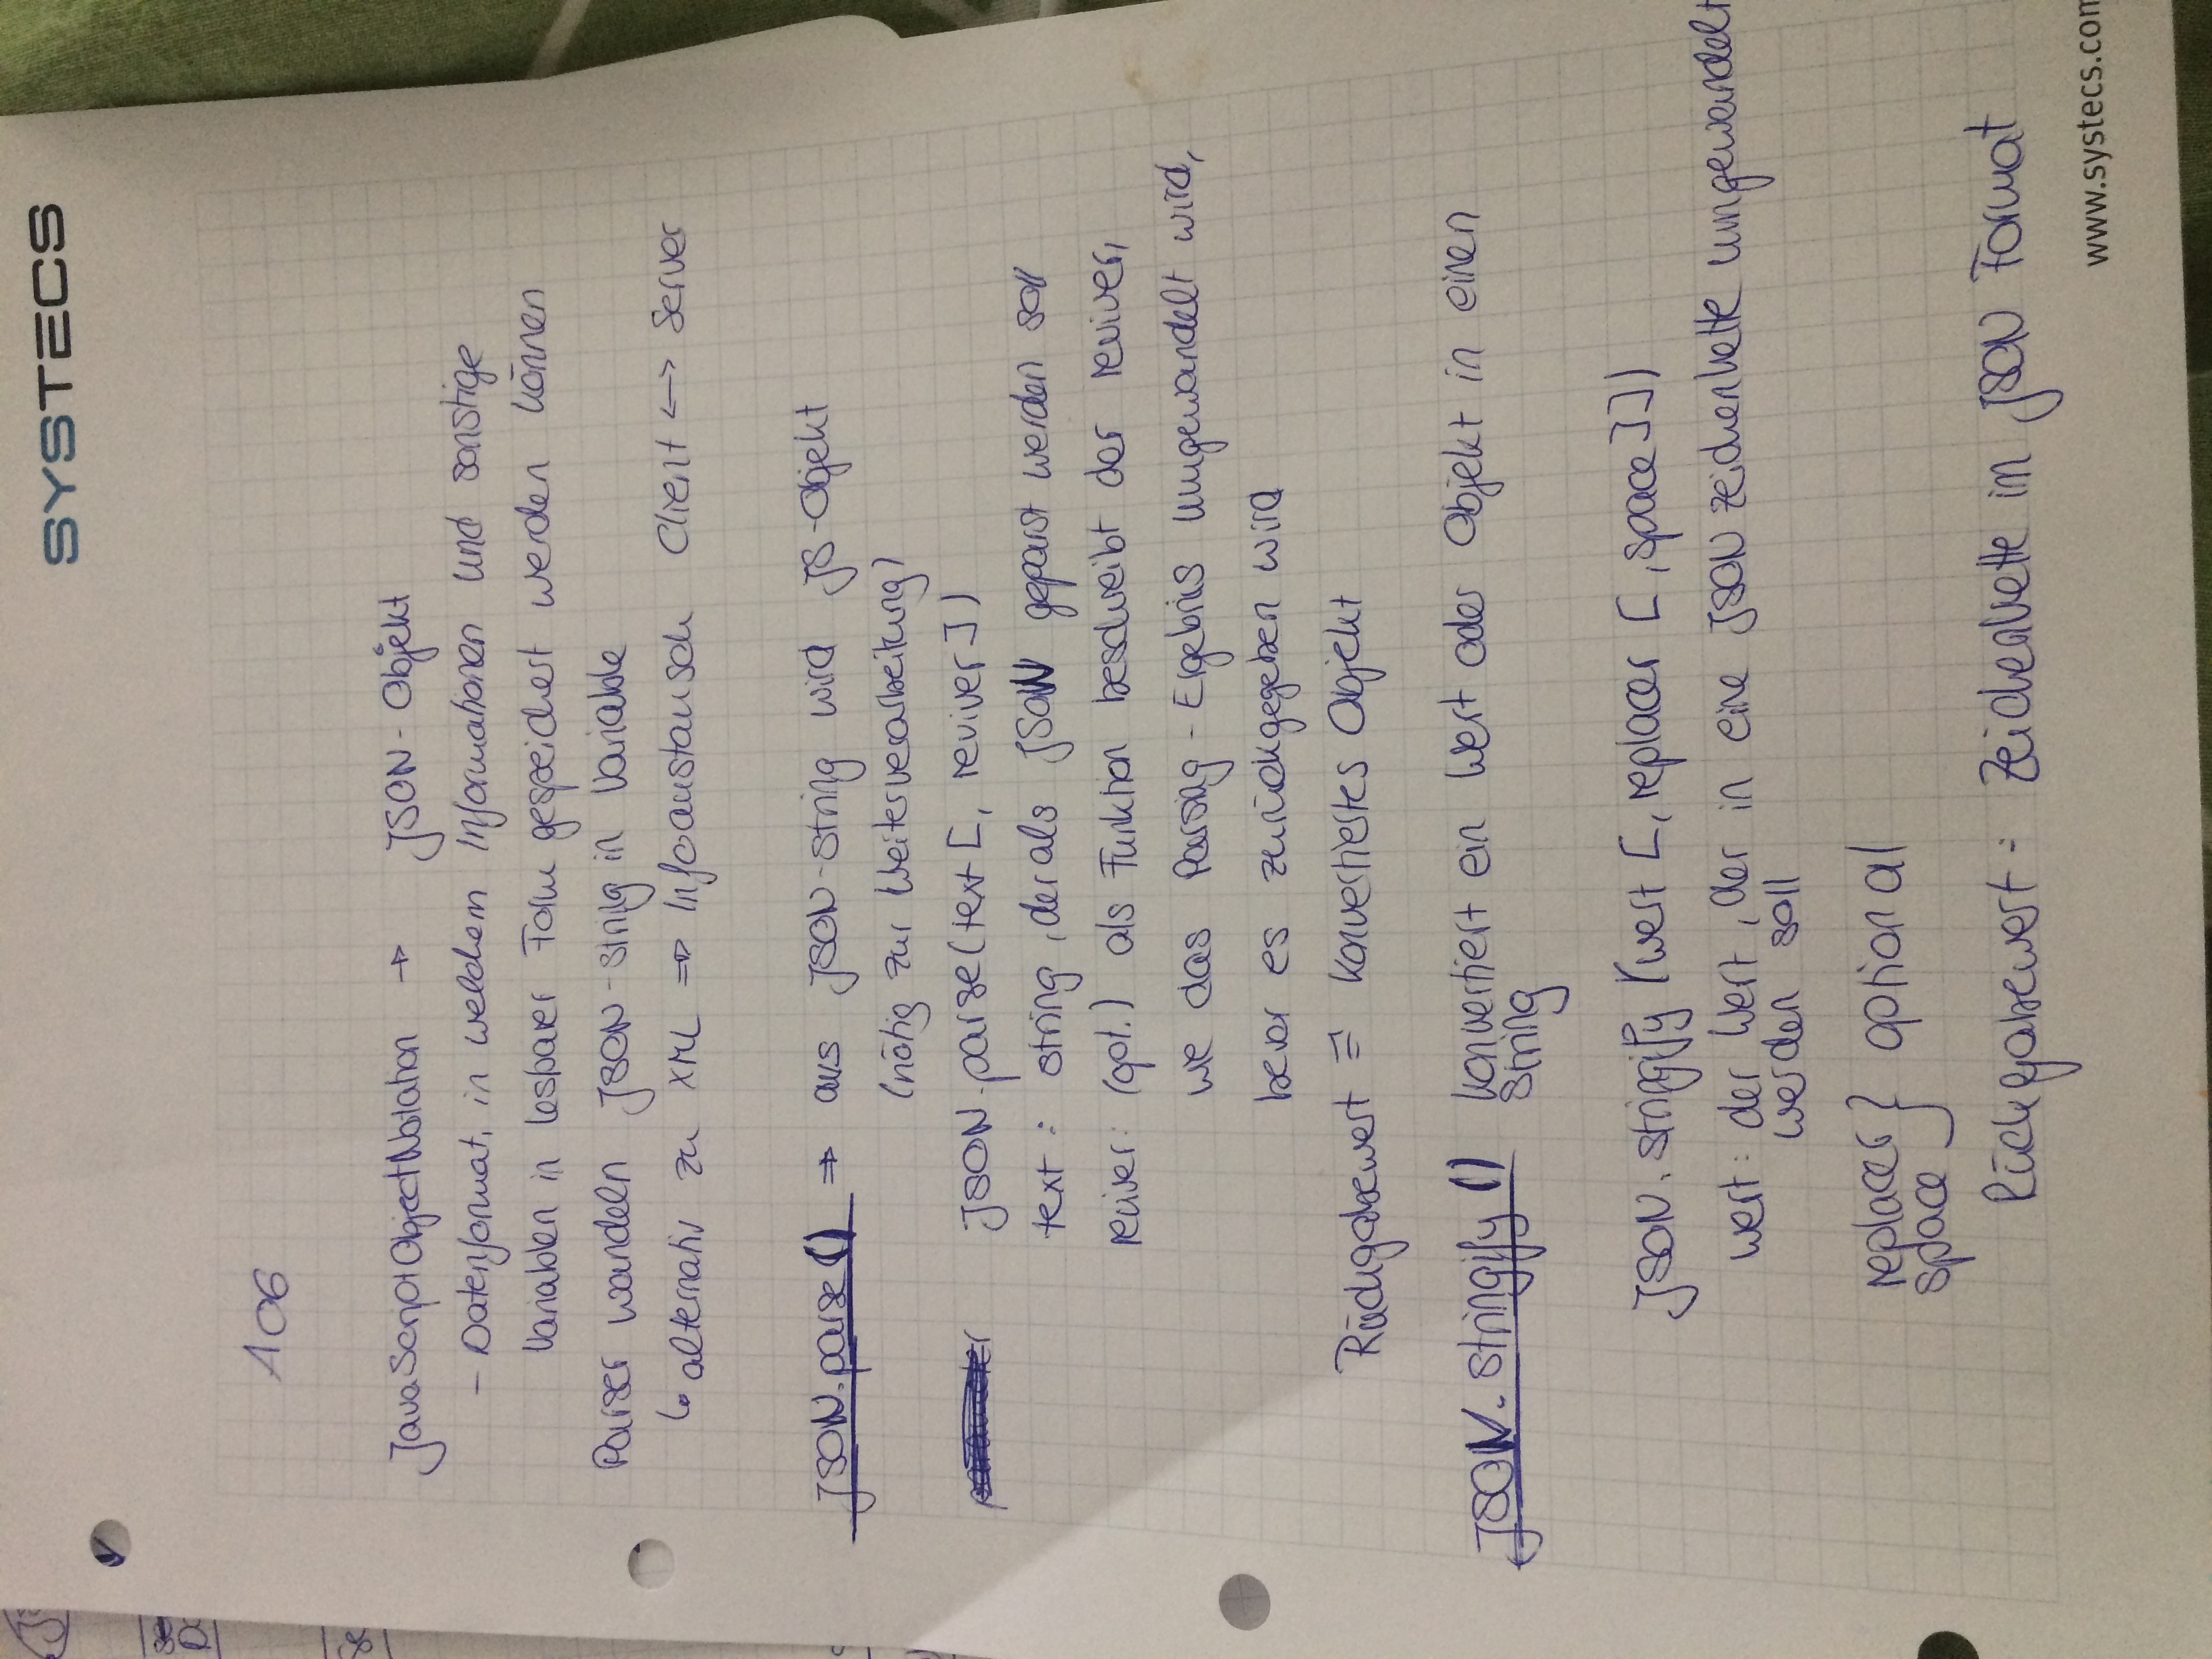 SYSTECS
A06
JavaScriptObjectNotation → JSON-Objekt
- Datenformat, in welchem Informationen und sonstige
Variablen in lesbarer Form gespeichert werden können
Parser wandeln JSON-string in Variable
↳ alternativ zu XML ⇒ Infoaustausch Client ↔ Server
JSON.parse() ⇒ aus JSON-string wird JS-Objekt
(nötig zur Weiterverarbeitung)
parameter JSON.parse(text [, reviver])
text: string, der als JSON geparst werden soll
reviver: (opt.) als Funktion beschreibt der reviver,
wie das Parsing-Ergebnis umgewandelt wird,
bevor es zurückgegeben wird
Rückgabewert = konvertiertes Objekt
JSON.stringify() konvertiert ein Wert oder Objekt in einen
String
JSON.stringify(wert [, replacer [, space]])
wert: der Wert, der in eine JSON zeichenkette umgewandelt
werden soll
replacer } optional
space
Rückgabewert: Zeichenkette im JSON Format
www.systecs.com